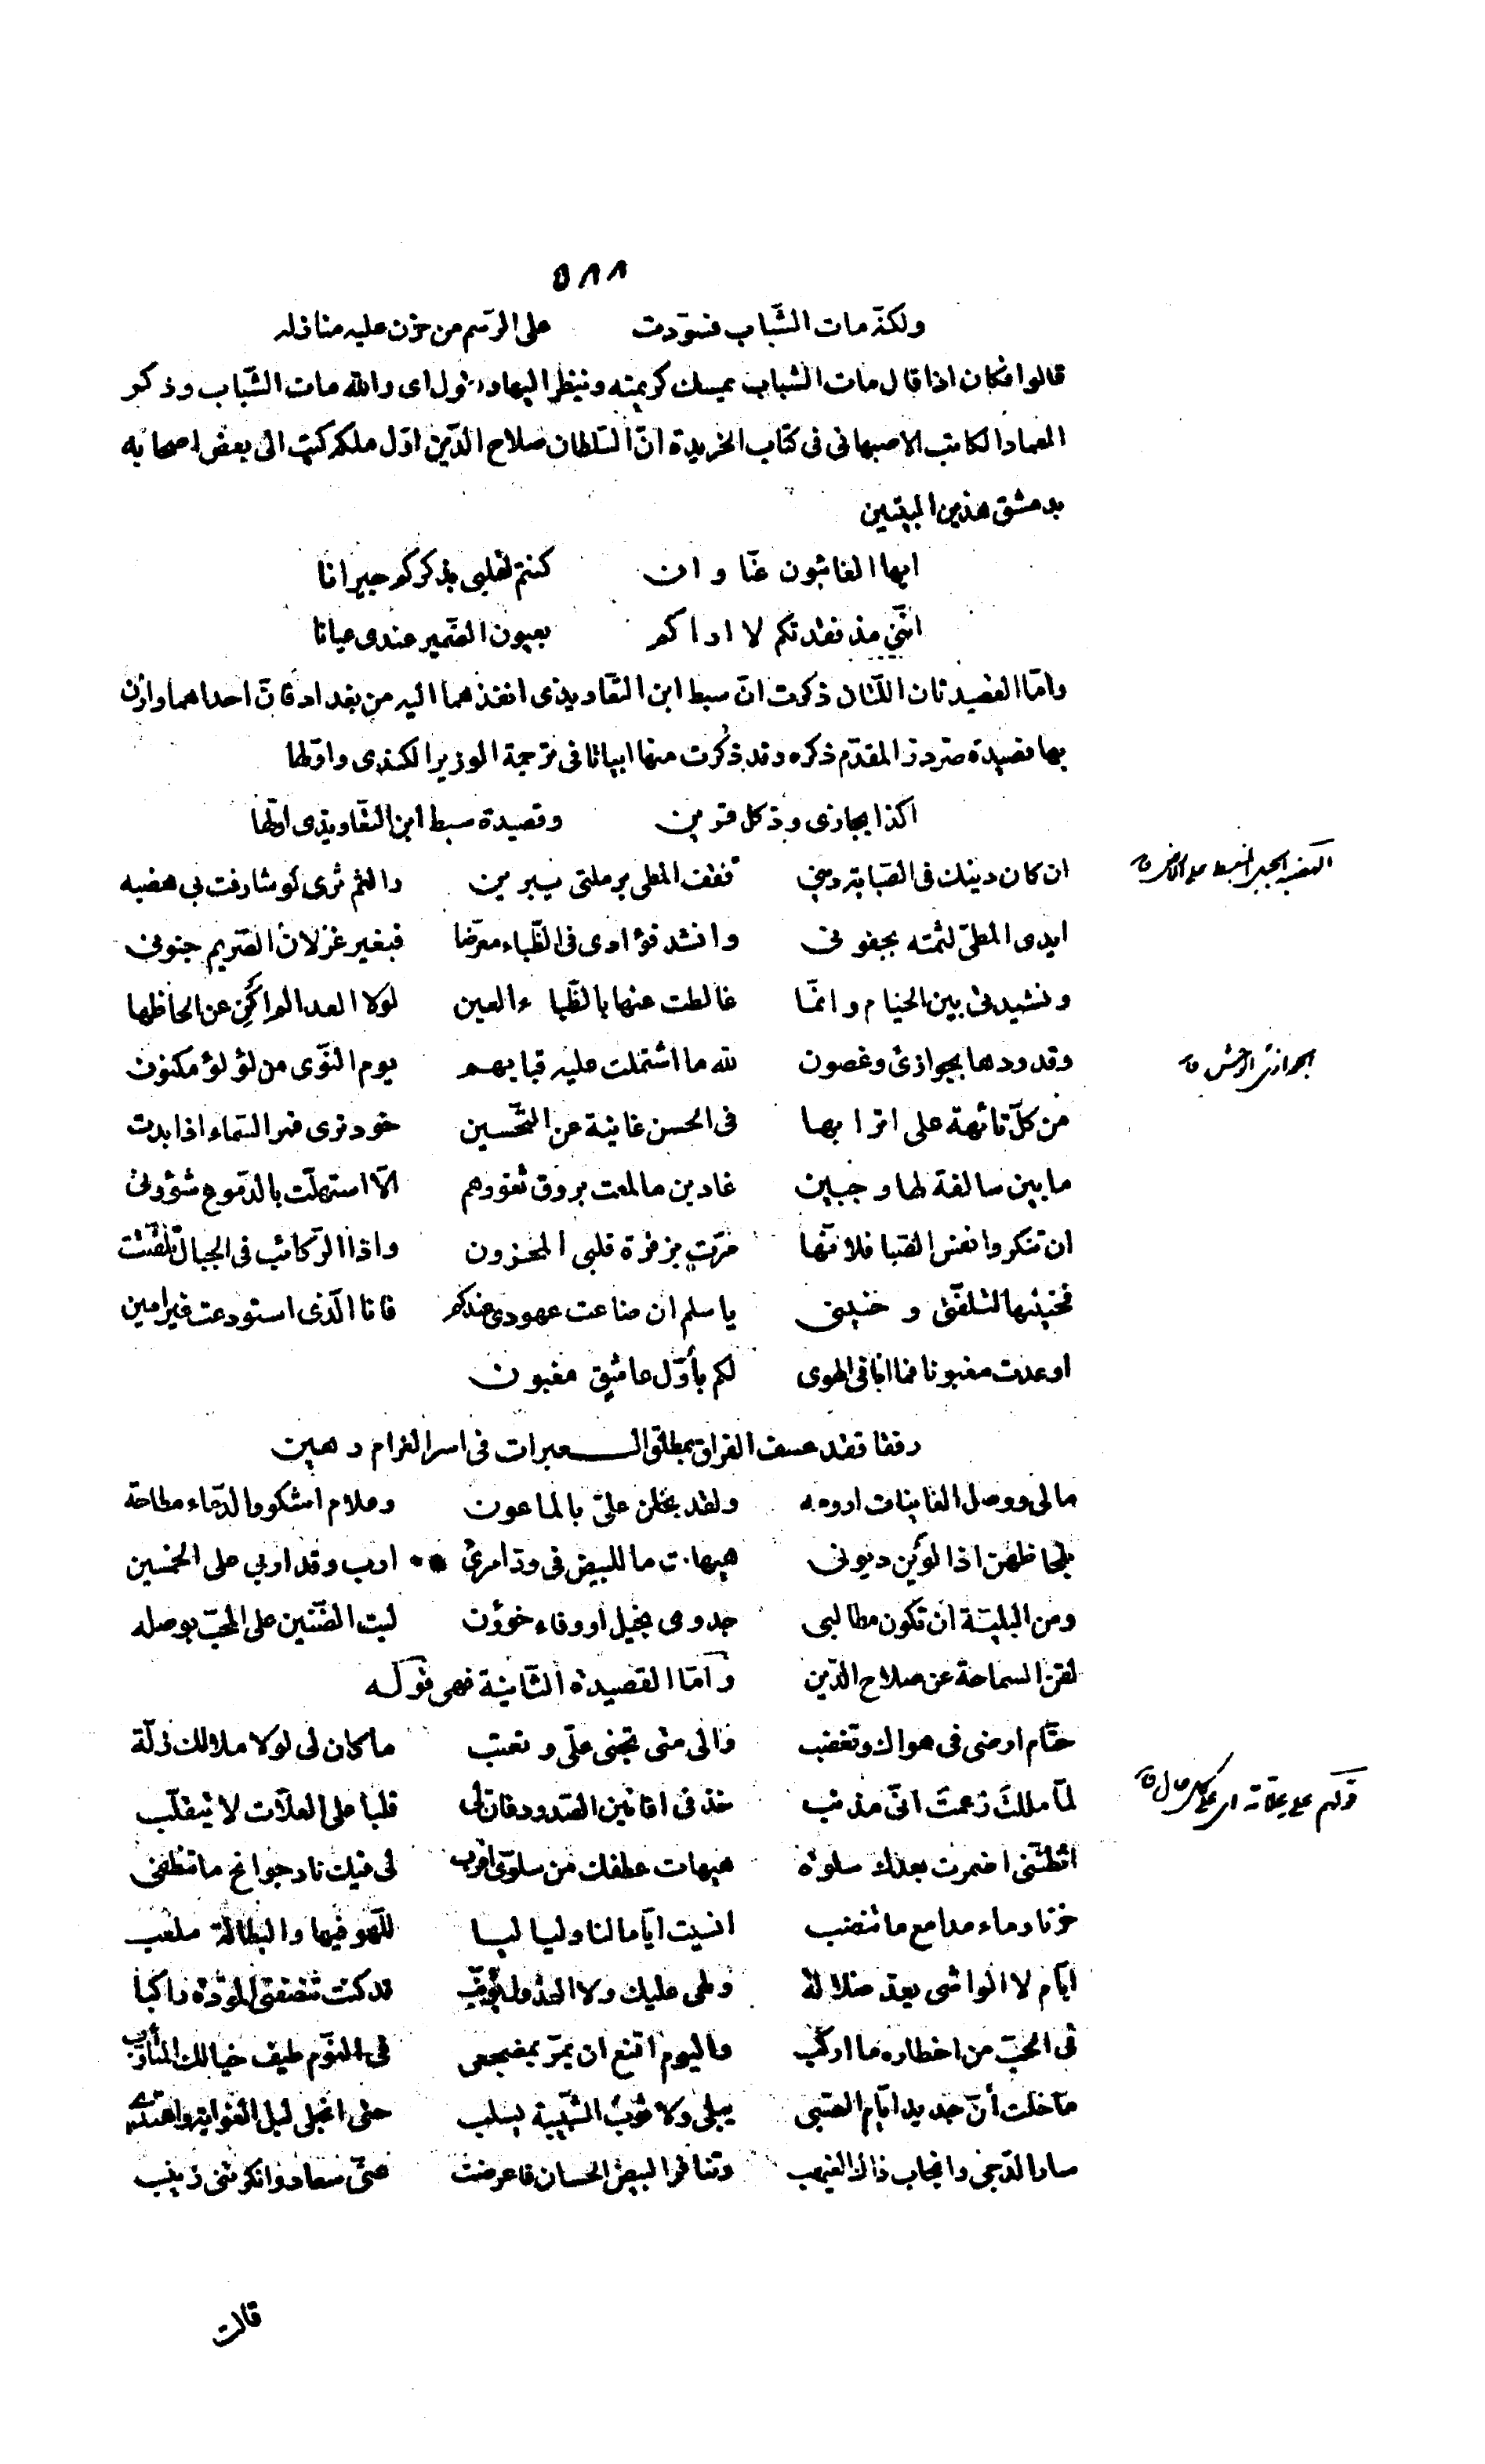 ٥٨٨
ولكنّه مات الشّباب فسوّدت على الرّسم من حزن عليه منازله
قالوا فكان اذا قال مات الشباب يمسك كريمته وينظر اليها ويقول اى والله مات الشّباب وذكر
العماد الكاتب الاصبهانى فى كتاب الخريدة انّ السّلطان صلاح الدّين اوّل ملكه كتب الى بعض اصحابه
بدمشق هذين البيتين
ايها الغائبون عنّا وان كنتم لقلبى بذكركم جيرانا
انّنى مذ فقدتكم لا اراكم بعيون الضّمير عندى عيانا
وامّا القصيدتان اللّتان ذكرت انّ سبط ابن التّعاويذى انفذهما اليه من بغداد فانّ احداهما وازن
بها قصيدة صرّدرّ المقدّم ذكره وقد ذكرت منها ابياتا فى ترجمة الوزير الكندى واوّلها
اكذا يجازى ودّ كل قرين وقصيدة سبط ابن التّعاويذى اوّلها
ان كان دينك فى الصّبابة دينى فقف المطى برملتى يبرين والثم ثرى لو شارفت بى هضبه
الهضبة الجبل المنبسط على الارض
ايدى المطىّ لثمته بجفونى وانشد فؤادى فى الظّباء معرّضا فبغير غزلان الصّريم جنونى
ونشيدتى بين الخيام وانّما غالطت عنها بالظّباء العين لولا العدا لم اكن عن الحاظها
وقدودها بجوازئ وغصون لله ما اشتملت عليه قبابهم يوم النّوى من لؤلؤ مكنون
الجوازئ الوحش
من كلّ تائهة على اترابها فى الحسن غانية عن التّحسين خود ترى قمر السّماء اذا بدت
ما بين سالفة لها وجبين غادين ما لمعت بروق ثغورهم الّا استهلّت بالدّموع شؤونى
ان تنكروا نفس الصّبا فلانّها مرّت بزفرة قلبى المحزون واذا الرّكائب فى الجبال تلفّتت
فحنينها لتلفّتى وحنينى يا سلم ان ضاعت عهودى عندكم فانا الّذى استودعت غير امين
او عدت مغبونا فما انا فى الهوى لكم بأوّل عاشق مغبون
رفقا فقد عسف الفراق بمطلق العبرات فى اسر الغرام رهين
مالى ووصل الغانيات ارومه ولقد بخلن علىّ بالماعون وعلام اشكو والدّماء مطاحة
بلحاظهنّ اذا لوين ديونى هيهات ما للبيض فى ودّ امرئ ارب وقد اربى على الخمسين
ومن البليّة ان تكون مطالبى جدوى بخيل او وفاء خؤون ليت الضّنين على المحبّ بوصله
لقن السماحة عن صلاح الدّين وامّا القصيدة الثّانية فهى قوله
حتّام ارضى فى هواك وتغضب والى متى تجنى علىّ وتعتب ما كان لى لولا ملالك زلّة
لمّا مللت زعمت انّى مذنب خذ فى افانين الصّدود فان لى قلبا على العلّات لا يتقلّب
قولهم على علّاته اى على كل حال
اتظنّنى اضمرت بعدك سلوة هيهات عطفك من سلوّى اقرب لى فيك نار جوانح ما تنطفى
حزنا وماء مدامع ما تنضب انسيت ايّاما لنا ولياليا للّهو فيها والبطالة ملعب
ايّام لا الواشى يعدّ ضلالة ولهى عليك ولا العذول يؤنّب قد كنت تنصفنى المودّة راكبا
فى الحبّ من اخطاره ما اركب واليوم اقنع ان يمرّ بمضجعى فى النّوم طيف خيالك المتأوّب
ما خلت أنّ جديد ايّام الصّبى يبلى ولا ثوب الشّبيبة يسلب حتى انجلى ليل الغواية واهتدى
سار الدّجى وانجاب ذاك الغيهب وتنافر البيض الحسان فاعرضت عنّى سعاد وانكرتنى زينب
قالت